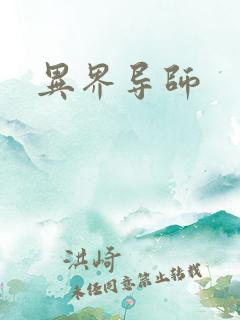 異界导師
洪崎
未经同意禁止转载